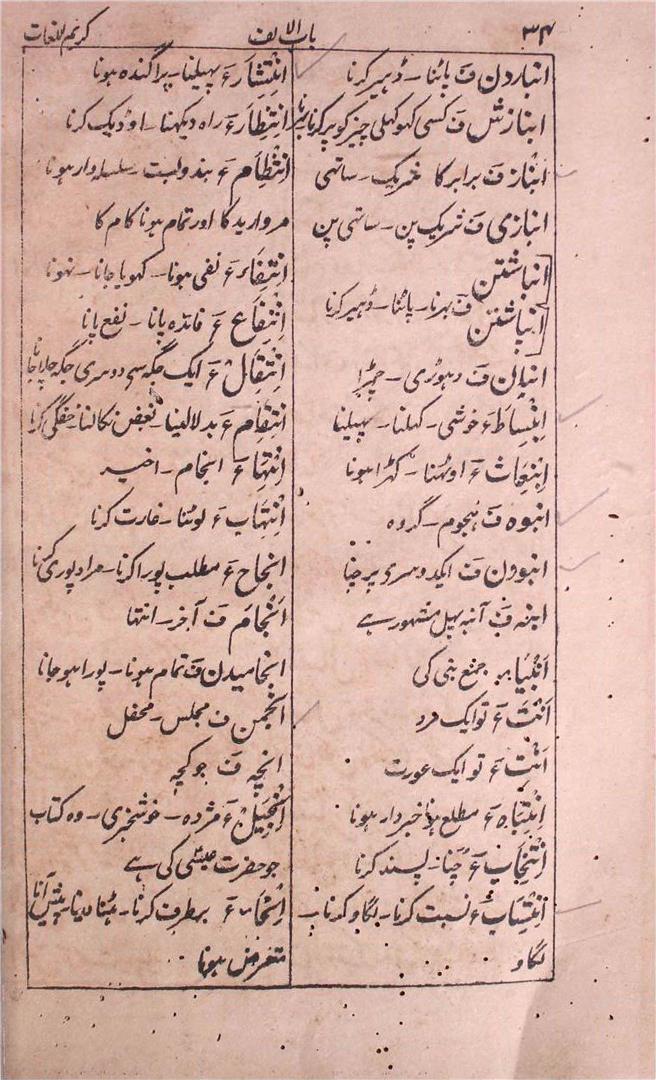 ۳۴
باب الالف
کریم اللغات
انباردن ف پاٹنا۔ ڈہیر کرنا
انبازش ف کسی کہوکہلی چیز کو پر کرنا
انباز ف برابر کا شریک۔ ساتھی
انبازی ف شریک پن۔ ساتھی پن
انباشتن
انپاشتن ف بہرنا۔ پاٹنا۔ ڈہیر کرنا
انبان ف دہوڑی۔ چمڑا
اِنْبِسَاط ء خوشی۔ کہلنا۔ پہیلنا
اِنْبِعَاث ء اوٹہنا۔ کہڑا ہونا
انبوہ ف ہجوم۔ گروہ
انبودن ف ایکدوسری پر چننا
انبہ ف آنبہ پہل مشہور ہے
اَنْبِیَا جمع نبی کی
اَنْتَ ء تو ایک مرد
اَنْتِ ء تو ایک عورت
اِنْتِبَاہ ء مطلع ہونا خبردار ہونا
اِنْتِخَاب ء چننا۔ پسند کرنا
اِنْتِسَاب ء نسبت کرنا۔ لگاو کرنا۔
لگاو
اِنْتِشَار ء پہیلنا۔ پراگندہ ہونا
اِنْتِظَار ء راہ دیکہنا۔ اوڈیک کرنا
اِنْتِظَام ء بندوبست۔ سلسلہ وار ہونا
مروارید کا اور تمام ہونا کام کا
اِنْتِفَاء ء نفی ہونا۔ کہویا جانا۔ نہونا
اِنْتِفَاع ء فائدہ پانا۔ نفع پانا
اِنْتِقَال ء ایک جگہ سی دوسری جگہ چلا جانا
اِنْتِقَام ء بدلا لینا۔ بغض نکالنا۔ خفگی کرنا
اِنْتِهَاء ء انجام۔ اخیر
اِنْتِهَاب ء لوٹنا۔ غارت کرنا
انجاح ء مطلب پورا کرنا۔ مراد پوری کرنا
اَنْجَام ف آخر۔ انتہا
انجامیدن ف تمام ہونا۔ پورا ہو جانا
انجمن ف مجلس۔ محفل
انچہ ف جو کچہ
اِنْجِیْل ء مژدہ۔ خوشخبری۔ وہ کتاب
جو حضرت عیسٰی کی ہے
اِنْحَاء ء برطرف کرنا۔ ہٹا دینا۔ پیش آنا
متعرض ہونا